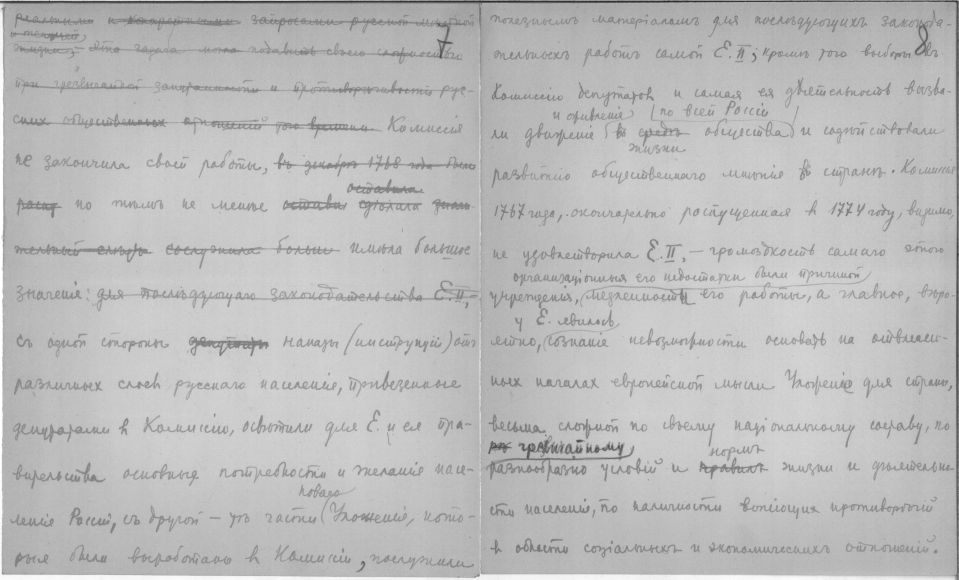 7
реальными и запросами русской
жизни, эта задача могла подавить своею сложностью
при чрезвычайной запутанности и противоречивости рус-
ских общественных отношений того времени Комиссія
не закончила своей работы, въ декабрѣ 1768 года была
оставила
расп но тѣмъ не менѣе оставил сдѣлала знач
тельный слѣдъ сослужила больш имѣла большое
значеніе: для послѣдующаго законодательства Е. II, –
съ одной стороны депутаты наказы (инструкціи) отъ
различныхъ слоевъ русскаго населенія, привезенные
депутатами в Комиссію, освѣтили для Е. и ея пра-
вительства основные потребности и желанія насе-
новаго
ленія Россіи, съ другой – тѣ части Уложенія, кото-
рыя были выработаны в Комисіи, послужили
8
полезнымъ матеріаломъ для послѣдующихъ законода-
тельныхъ работъ самой Е. II; кромѣ того выборы въ
Комиссію депутатовъ и самая ея дѣятельность вызва-
и оживленіе по всей Россіи
ли движеніе въ средѣ общества и содѣйствовали
жизни
развитію общественнаго мнѣнія в странѣ. Комисія
1767 года, окончательно распущенная в 1774 году, видимо,
не удовлетворила Е. II, – громоздкость самаго этого
организаціонныя его недостатки были причиной
учрежденія, медленность его работы, а главное, вѣро-
у Е. явилось
ятно, сознаніе невозможности основать на отвлечен-
ныхъ началахъ европейской мысли Уложеніе для страны,
весьма сложной по своему національному составу, по
чрезвычайному
нормъ
разнообразію условій и правилъ жизни и дѣятельно-
сти населенія, по наличности вопіющихъ противорѣчій
в области соціальныхъ и экономическихъ отношеній.